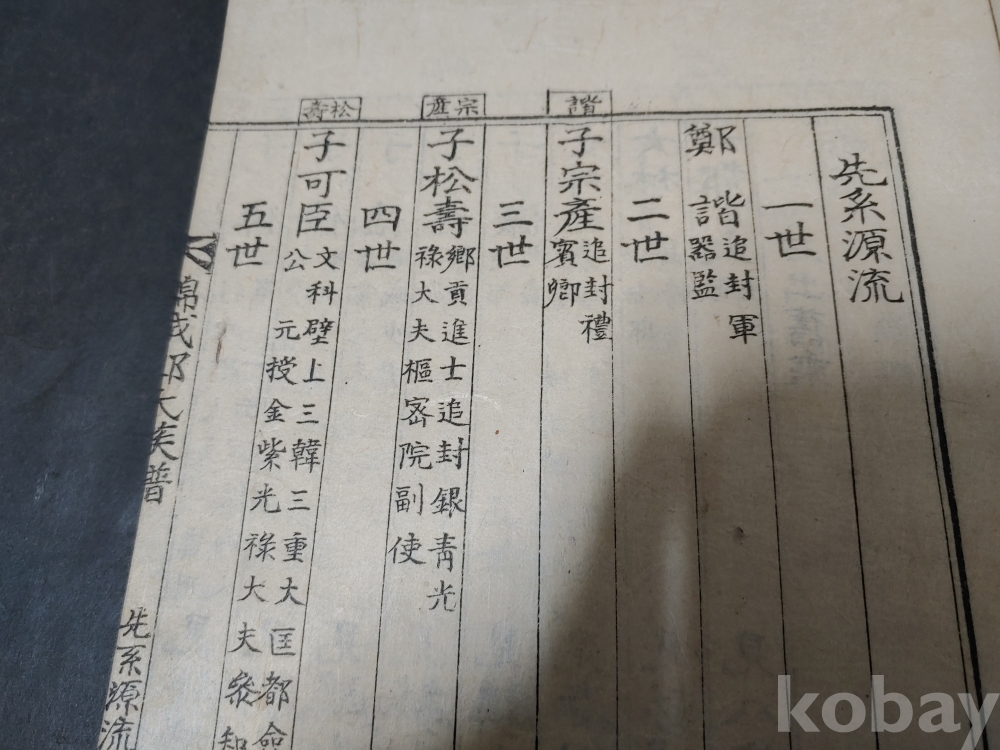 先系源流
一世
鄭諧追封軍
器監
二世
諧
子宗產追封禮
賓卿
三世
宗產
子松壽鄉貢進士追封銀青光
祿大夫樞密院副使
四世
松壽
子可臣文科壁上三韓三重大匡都命
公元授金紫光祿大夫叅知
五世
錦城丁大族譜
先系源流
kobay